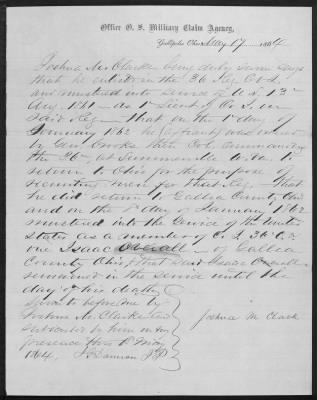 Office U. S. Military Claim Agency,
Gallipolis Ohio May 17 1864
Joshua M. Clarke being duly sworn says
that he enlisted in the 36 Reg O.V.I.
and mustered into service of U.S. 13th
Aug. 1861 - as 1st Lieut of Co I. in
said Reg - that on the 1st day of
January 1862 he (affiant) was ordered
by Gen Crooks then Col. commanding
the 36th at Summerville W. Va. to
return to Ohio for the purpose of
recruiting men for that Reg. - that
he did return to Gallia County Ohio
and on the day of January 1862
mustered into the service of the United
States as a member of Co. I. 36th O.
one Isaac Overall - of Gallia
County Ohio, & that said Isaac Overall
remained in the service until the
day of his death
Sworn to before me by
Joshua M. Clarke and
subscribed by him in my
presence this May
1864.
Joshua M Clark